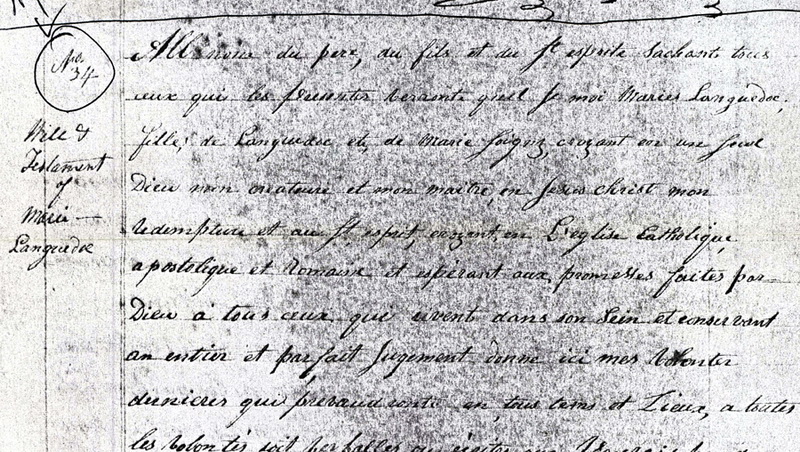 No.
34
Will &
Testament
of
Marie
Languedoc
All nom du pere, du fils et du St esprite Sachant tous
ceux qui les presenter verront quil Je moi Maries Languedoc,
fille, de Languedoc et, de Marie croyant en un seul
Dieu mon createure et mon maitre, en Jesus Christ mon
redempture et au St. esprit, croyant, en L'eglise Catholique,
apostolique et Romaine et esperant aux promesses faites par
Dieu a tous ceux qui vivent dans son Sein et conservant
an entier et parfait Jugement donne ici mes volonter
dernieres qui prevaudronte en, tous tems et Lieux, a toutes
les volontés soit verballes ou